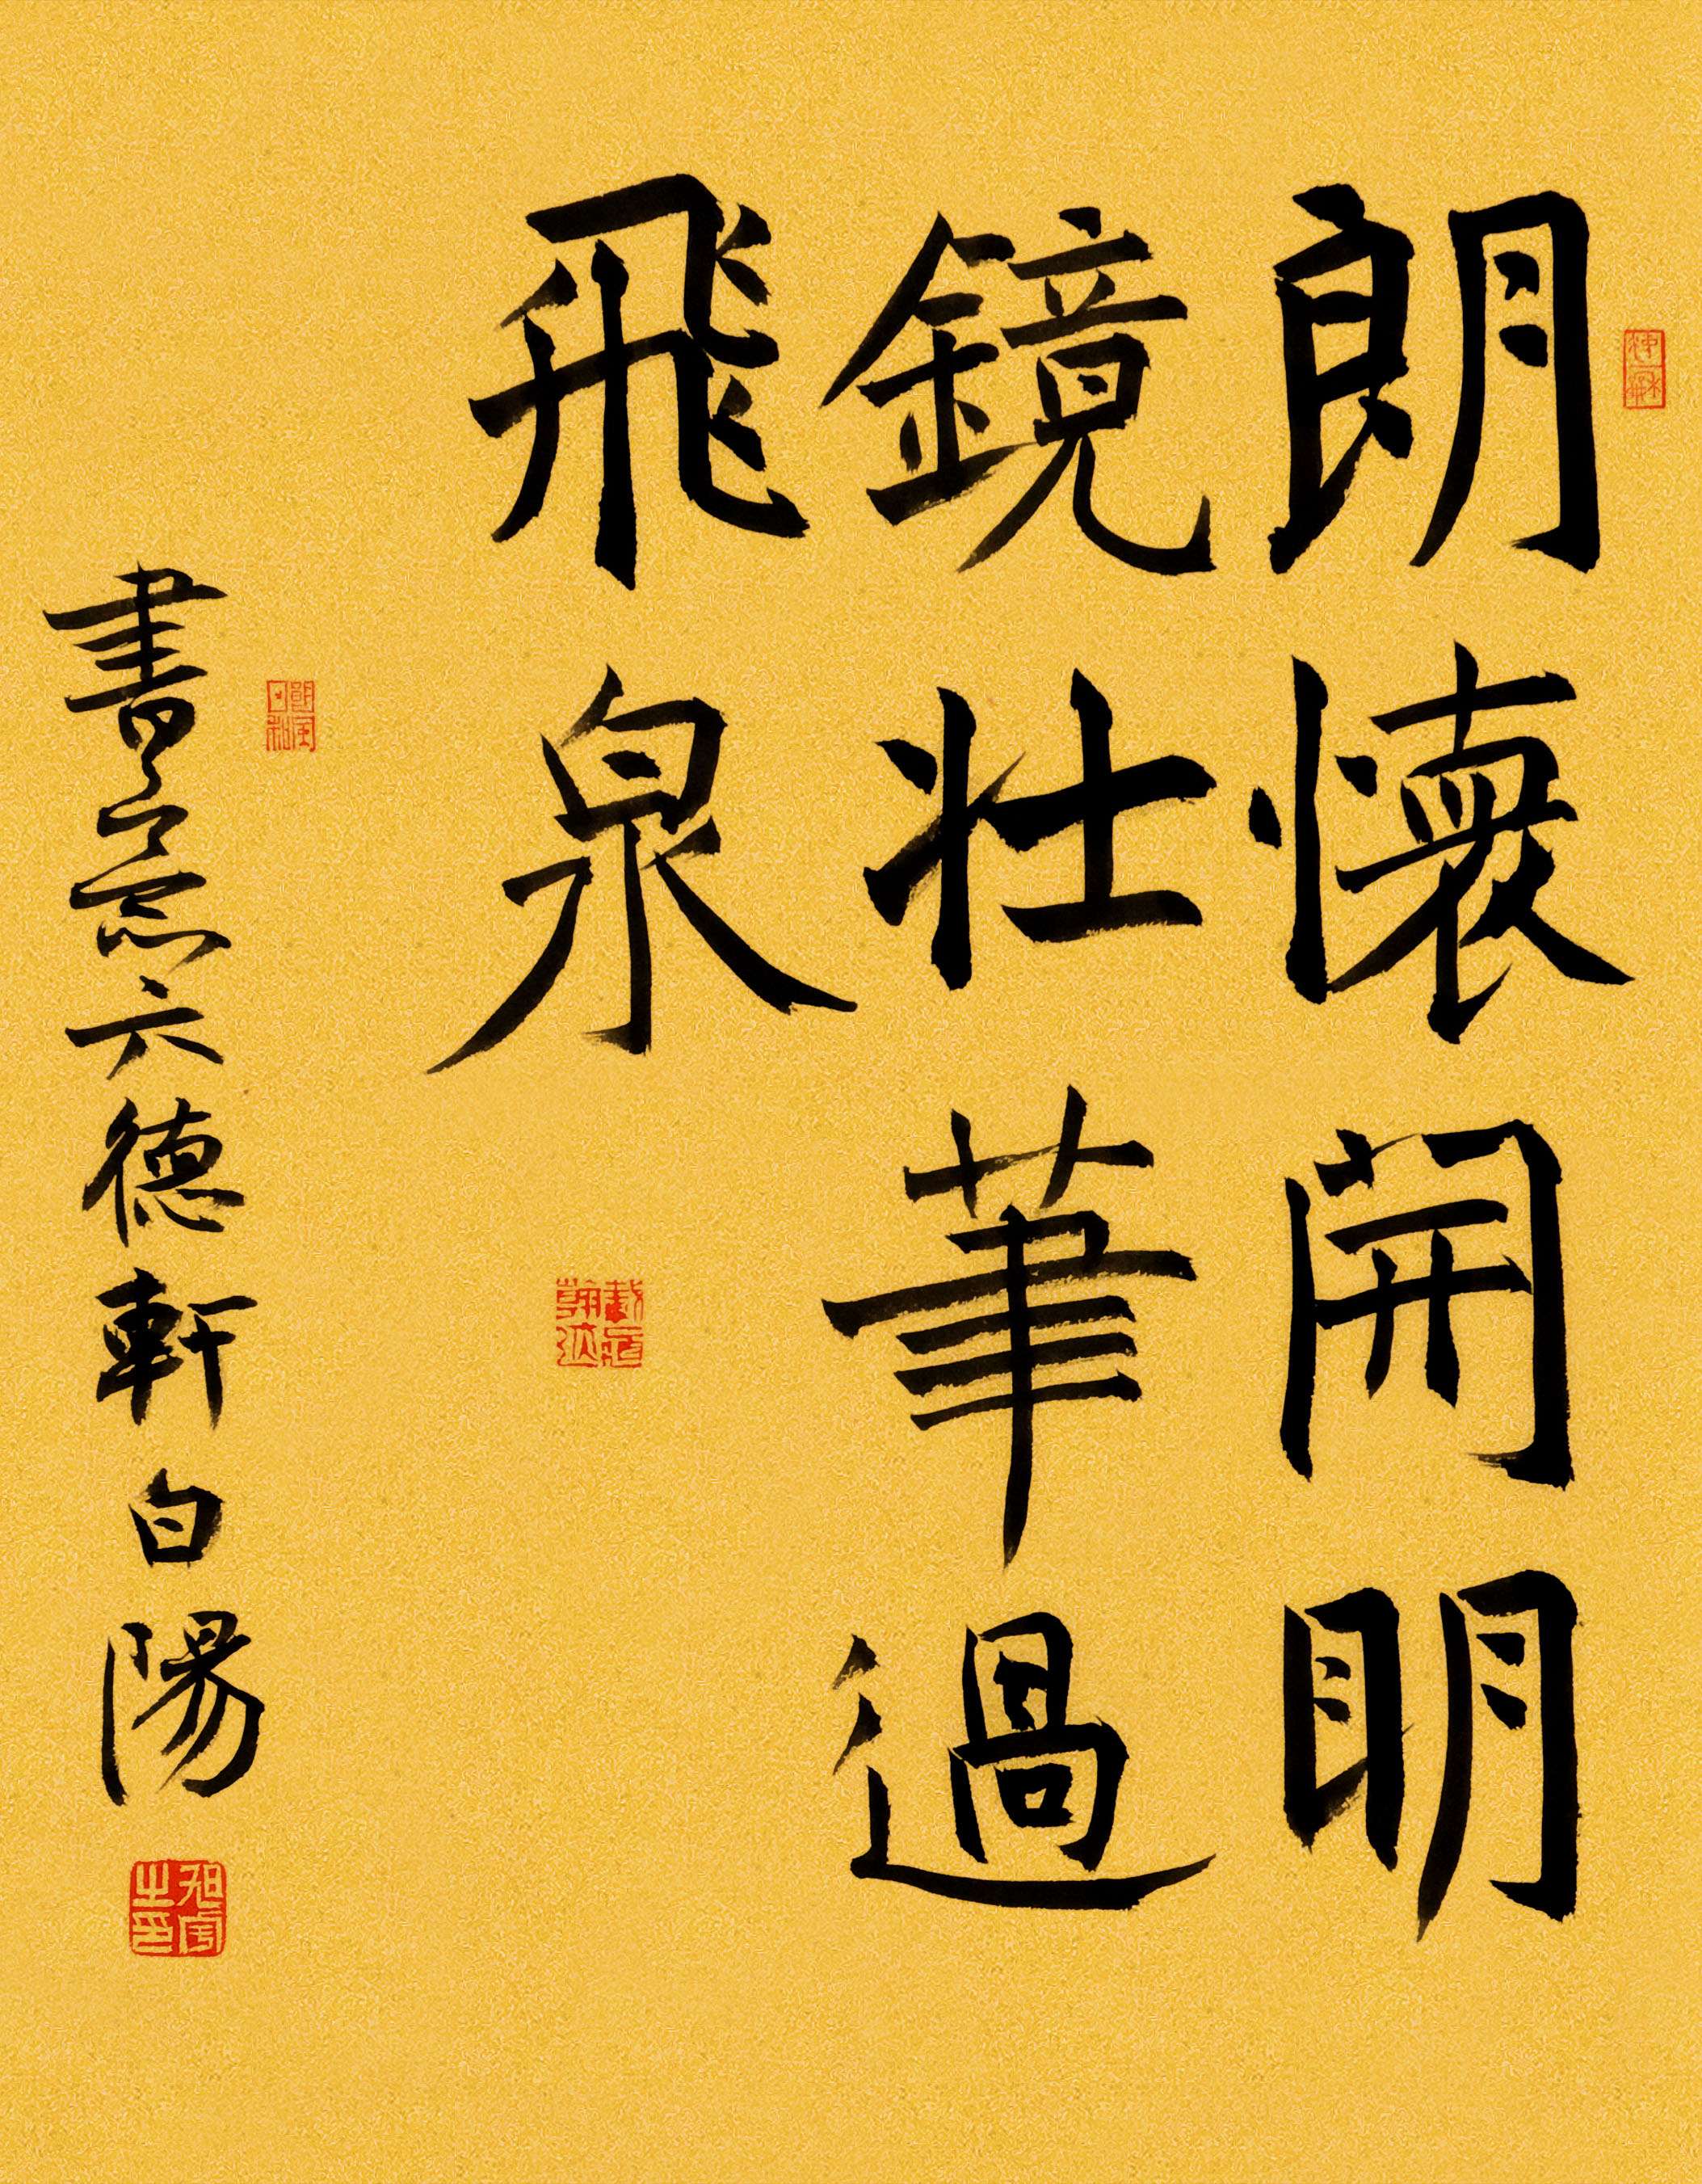 朗懷開明
鏡壯筆過
飛泉
書之意六德軒白陽